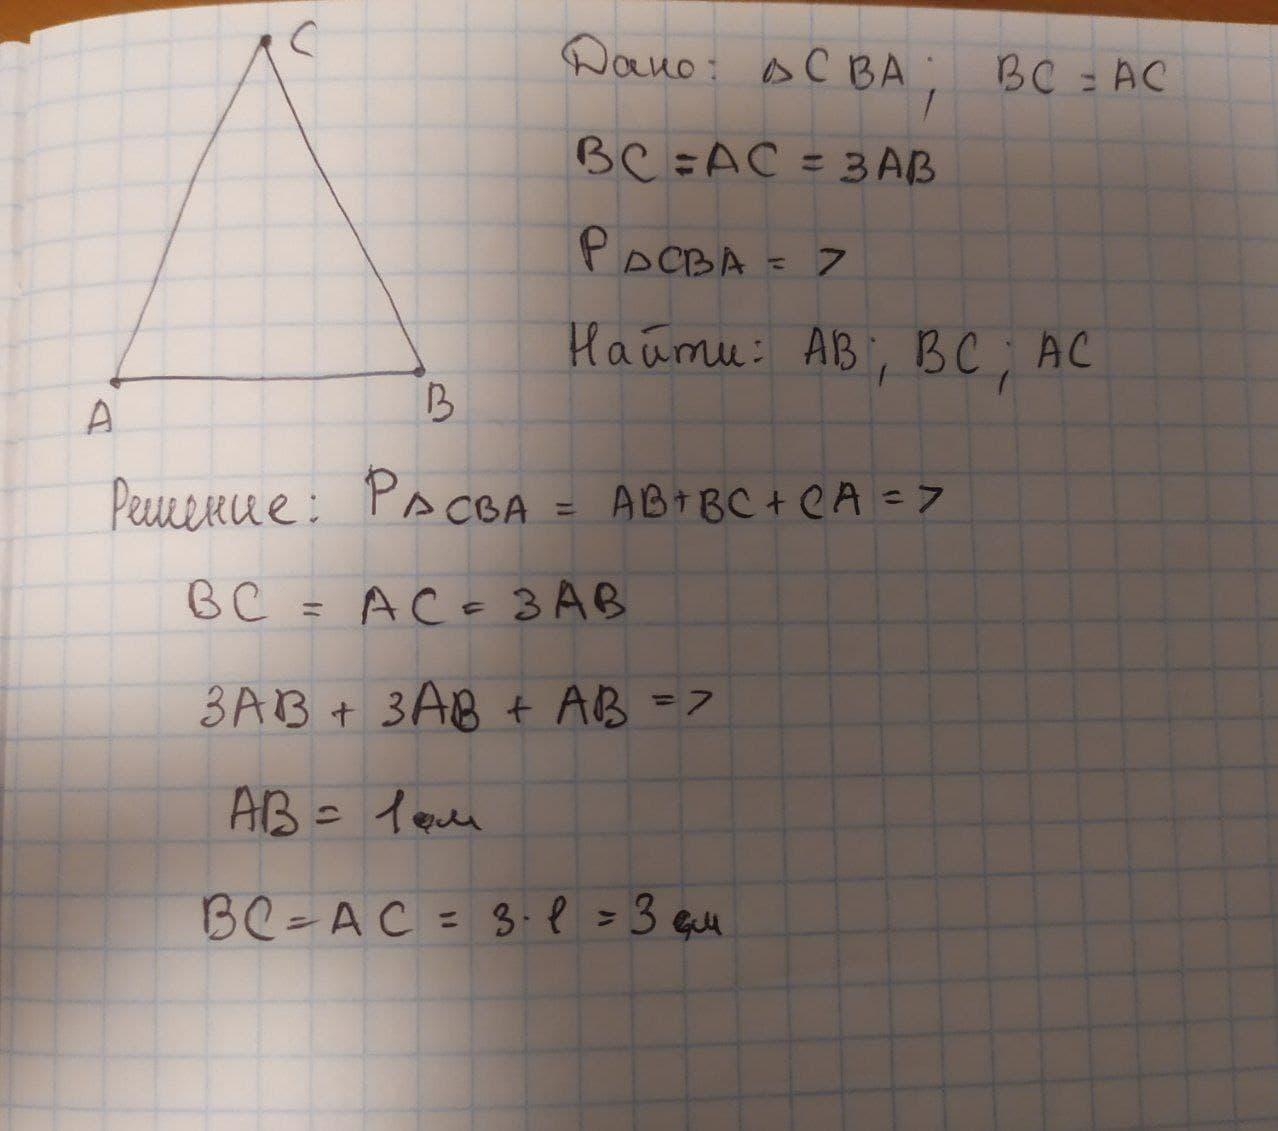 C
A
B
Дано: △CBA; BC = AC
BC = AC = 3AB
P△CBA = 7
Найти: AB; BC; AC
Решение: P△CBA = AB+BC+CA = 7
BC = AC = 3AB
3AB + 3AB + AB = 7
AB = 1 см
BC = AC = 3·1 = 3 см